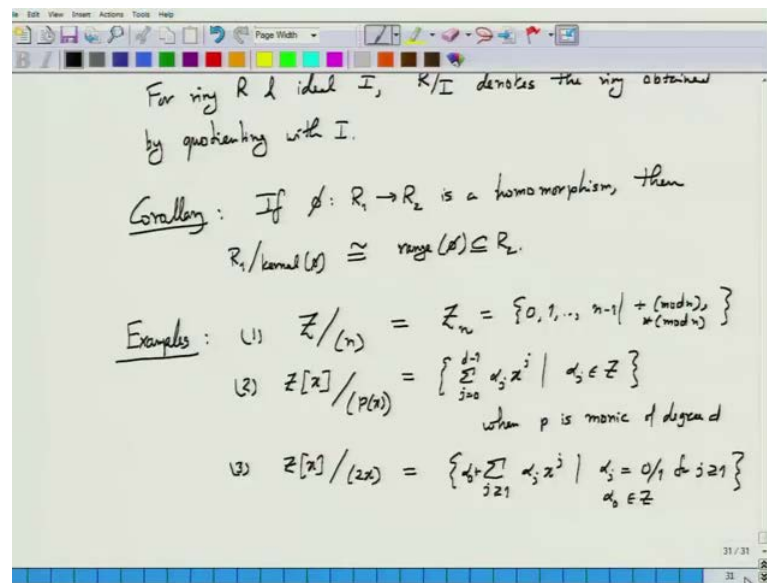 Edit View Insert Actions Tools Help
Page Width
B I
For ring R & ideal I, R/I denotes the ring obtained
by quotienting with I.
Corollary : If ϕ: R₁ → R₂ is a homomorphism, then
R₁/kernel(ϕ) ≅ range(ϕ) ⊆ R₂.
Examples : (1) Z/(n) = Zₙ = {0, 1, .., n-1 | + (mod n), * (mod n)}
(2) Z[x]/(p(x)) = { ∑_{j=0}^{d-1} α_j x^j | α_j ∈ Z }
when p is monic of degree d
(3) Z[x]/(2x) = {α₀ + ∑_{j≥1} α_j x^j | α_j = 0/1 for j≥1}
α₀ ∈ Z
31 / 31
31